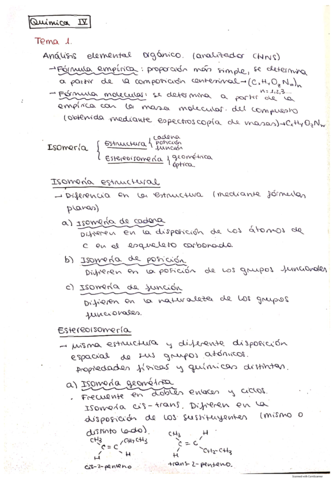 Química IV
Tema 1.
Análisis elemental orgánico. (analizador CNNS)
→ Fórmula empírica: proporción más simple, se determina
a partir de la composición centesimal → (CxHyOzNw)n
n = 1,2,3...
→ Fórmula molecular: se determina a partir de la
empírica con la masa molecular del compuesto
(obtenida mediante espectroscopía de masas) →
Isomería
Estructural
cadena
posición
función
Estereoisomería
geométrica
óptica
Isomería estructural
→ Diferencia en la estructura (mediante fórmulas
planas)
a) Isomería de cadena
Difieren en la disposición de los átomos de
C en el esqueleto carbonado
b) Isomería de posición
Difieren en la posición de los grupos funcionales
c) Isomería de función
Difieren en la naturaleza de los grupos
funcionales.
Estereoisomería
→ Misma estructura y diferente disposición
espacial de sus grupos atómicos.
Propiedades físicas y químicas distintas.
a) Isomería geométrica
- Frecuente en dobles enlaces y ciclos.
Isomería cis-trans. Difieren en la
disposición de los sustituyentes (mismo o
distinto lado).
CH3 CH2CH3 CH3 H
C=C C=C
H H H CH2-CH3
cis-2-penteno. trans-2-penteno.